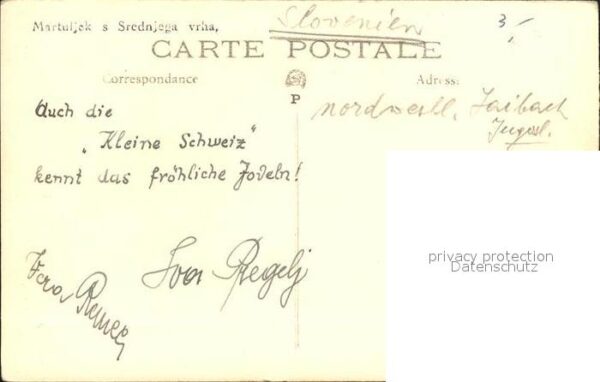 Martuljek s Srednjega vrha,
Slovenien
3,-
CARTE POSTALE
Correspondance
Adresse
P
nordwestl. Laibach
Jugosl.
Auch die
„Kleine Schweiz"
kennt das fröhliche Jodeln!
Iva Regelj
privacy protection
Datenschutz